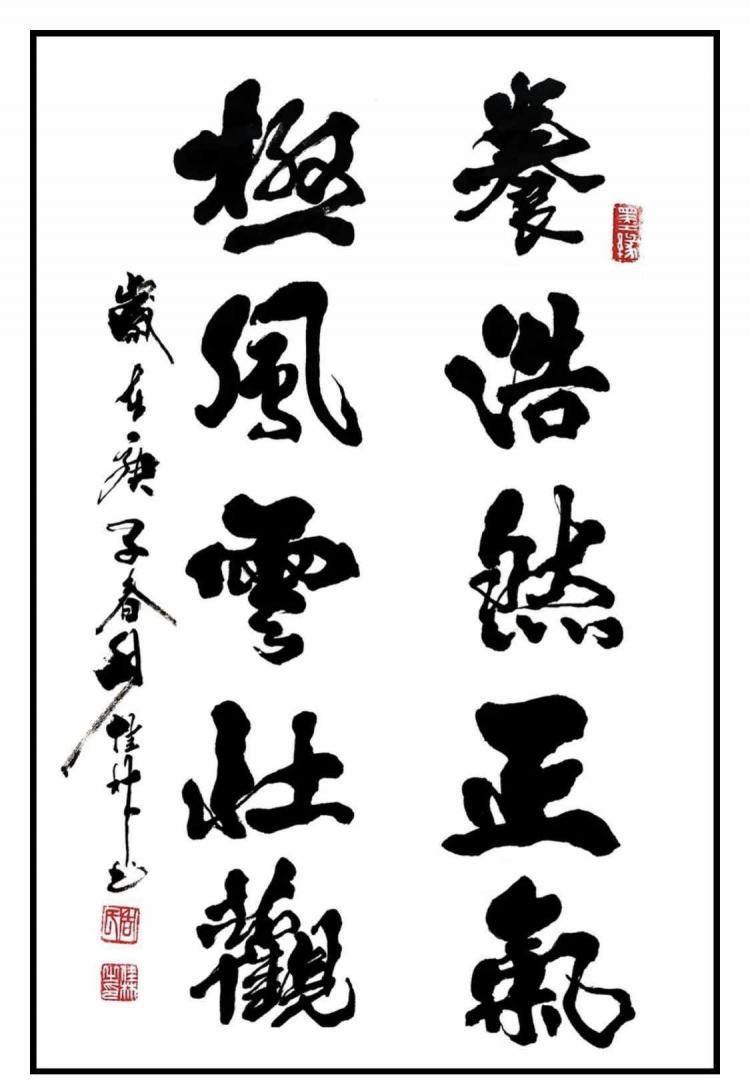 墨緣
養浩然正氣
極風雲壯觀
歲在庚子春月
周氏